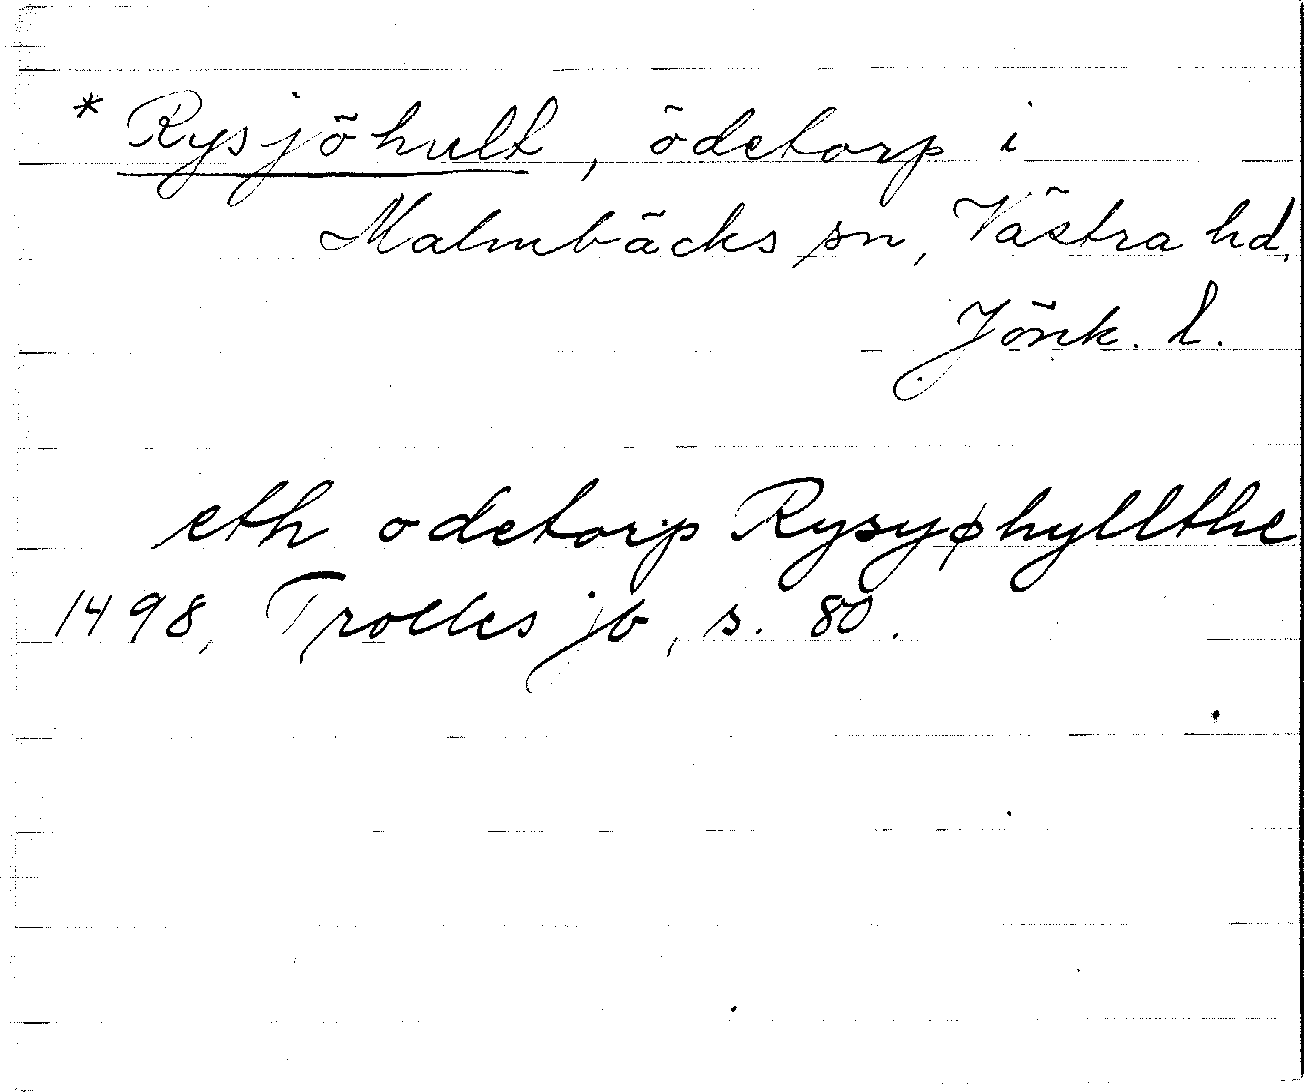 * Rysjöhult, ödetorp i
Malmbäcks sn, Västra hd,
Jönk. l.
eth odetorp Rysyøhyllthe
1498, Trolles jb, s. 80.